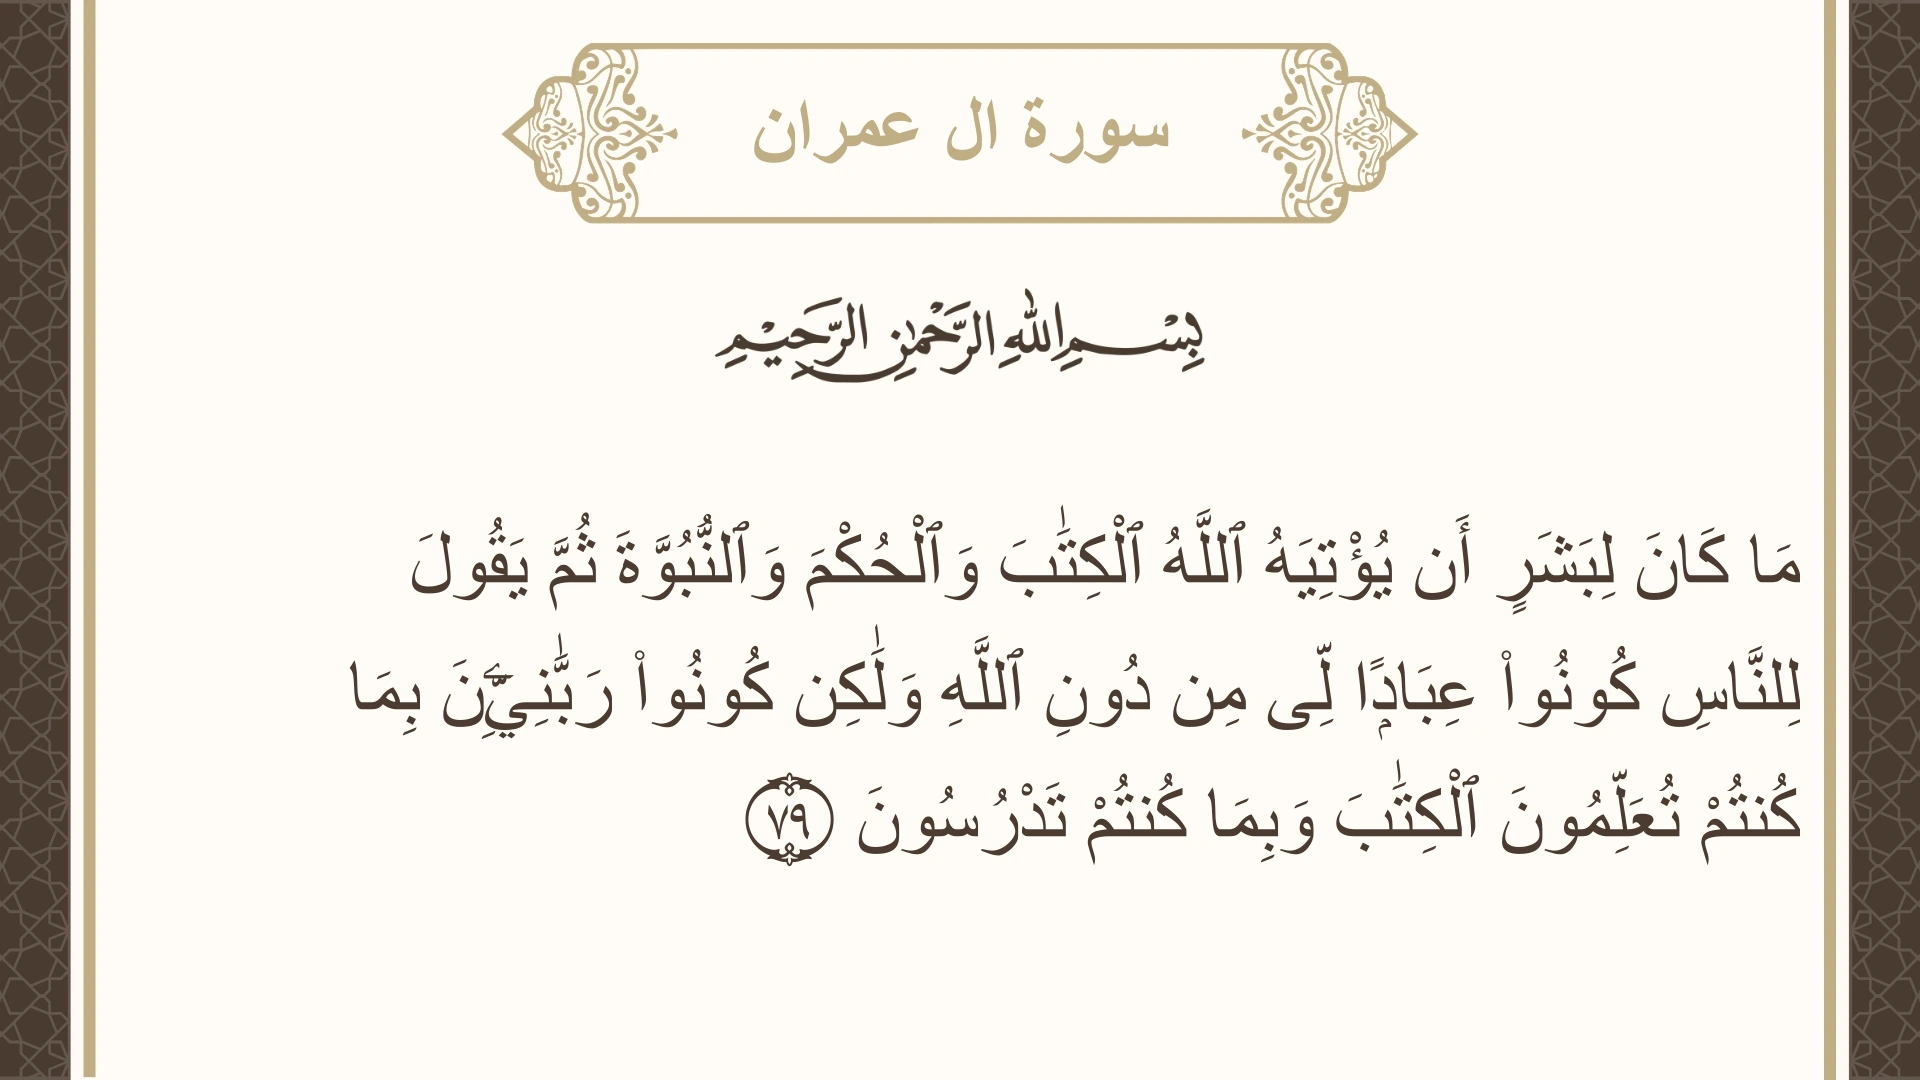 سورة ال عمران
بِسْمِ اللهِ الرَّحْمٰنِ الرَّحِيْمِ
مَا كَانَ لِبَشَرٍ أَن يُؤْتِيَهُ ٱللَّهُ ٱلْكِتَٰبَ وَٱلْحُكْمَ وَٱلنُّبُوَّةَ ثُمَّ يَقُولَ
لِلنَّاسِ كُونُوا۟ عِبَادًۭا لِّى مِن دُونِ ٱللَّهِ وَلَٰكِن كُونُوا۟ رَبَّٰنِيِّۦنَ بِمَا
كُنتُمْ تُعَلِّمُونَ ٱلْكِتَٰبَ وَبِمَا كُنتُمْ تَدْرُسُونَ ٧٩